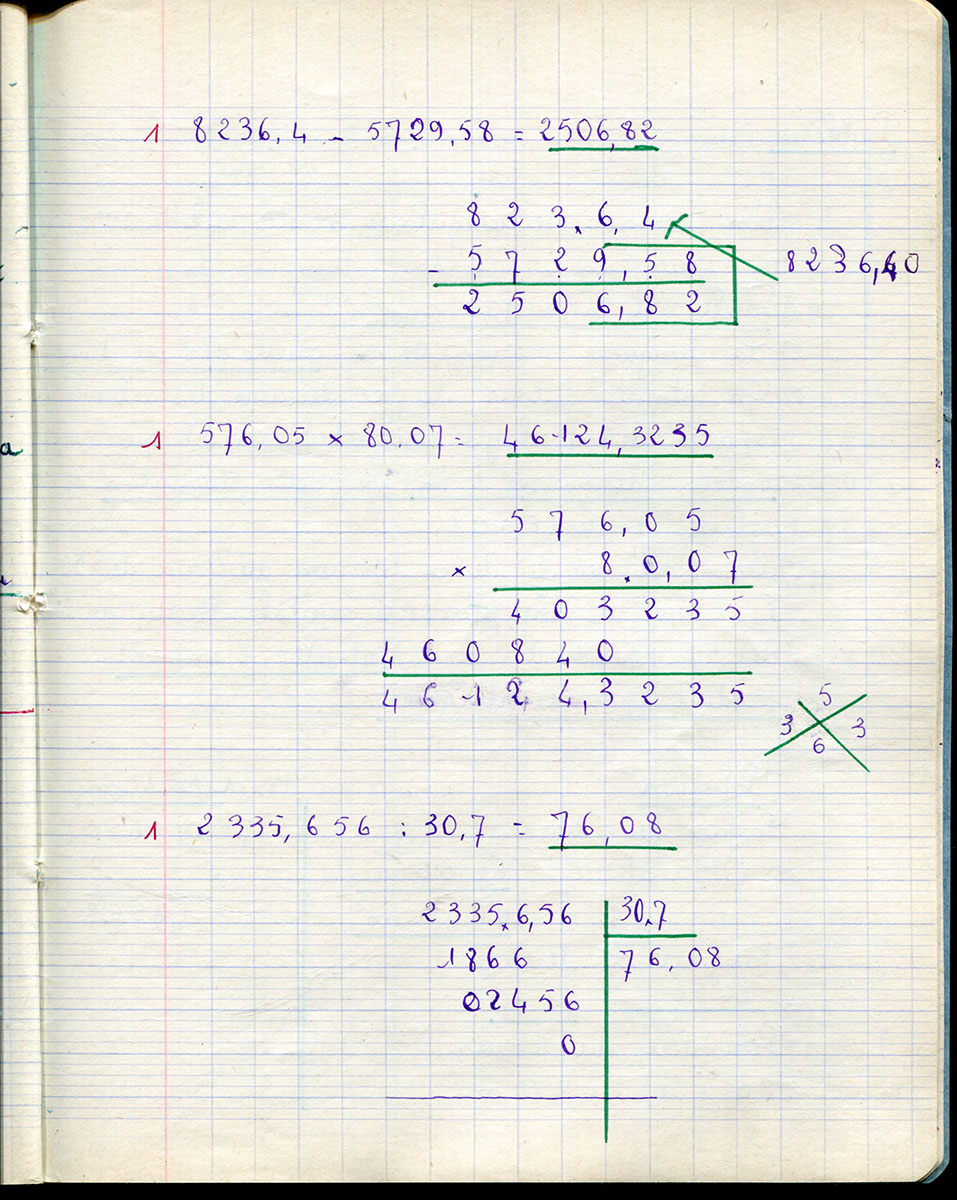 1 8236,4 - 5729,58 = 2506,82
8 2 3 6, 4
- 5 7 2 9, 5 8 8236,40
2 5 0 6, 8 2
1 576,05 × 80,07 = 46124,3235
5 7 6, 0 5
× 8 0, 0 7
4 0 3 2 3 5
4 6 0 8 4 0
4 6 1 2 4, 3 2 3 5
5
3 3
6
1 2335,656 : 30,7 = 76,08
2335.6,56 30.7
1866 76,08
02456
0